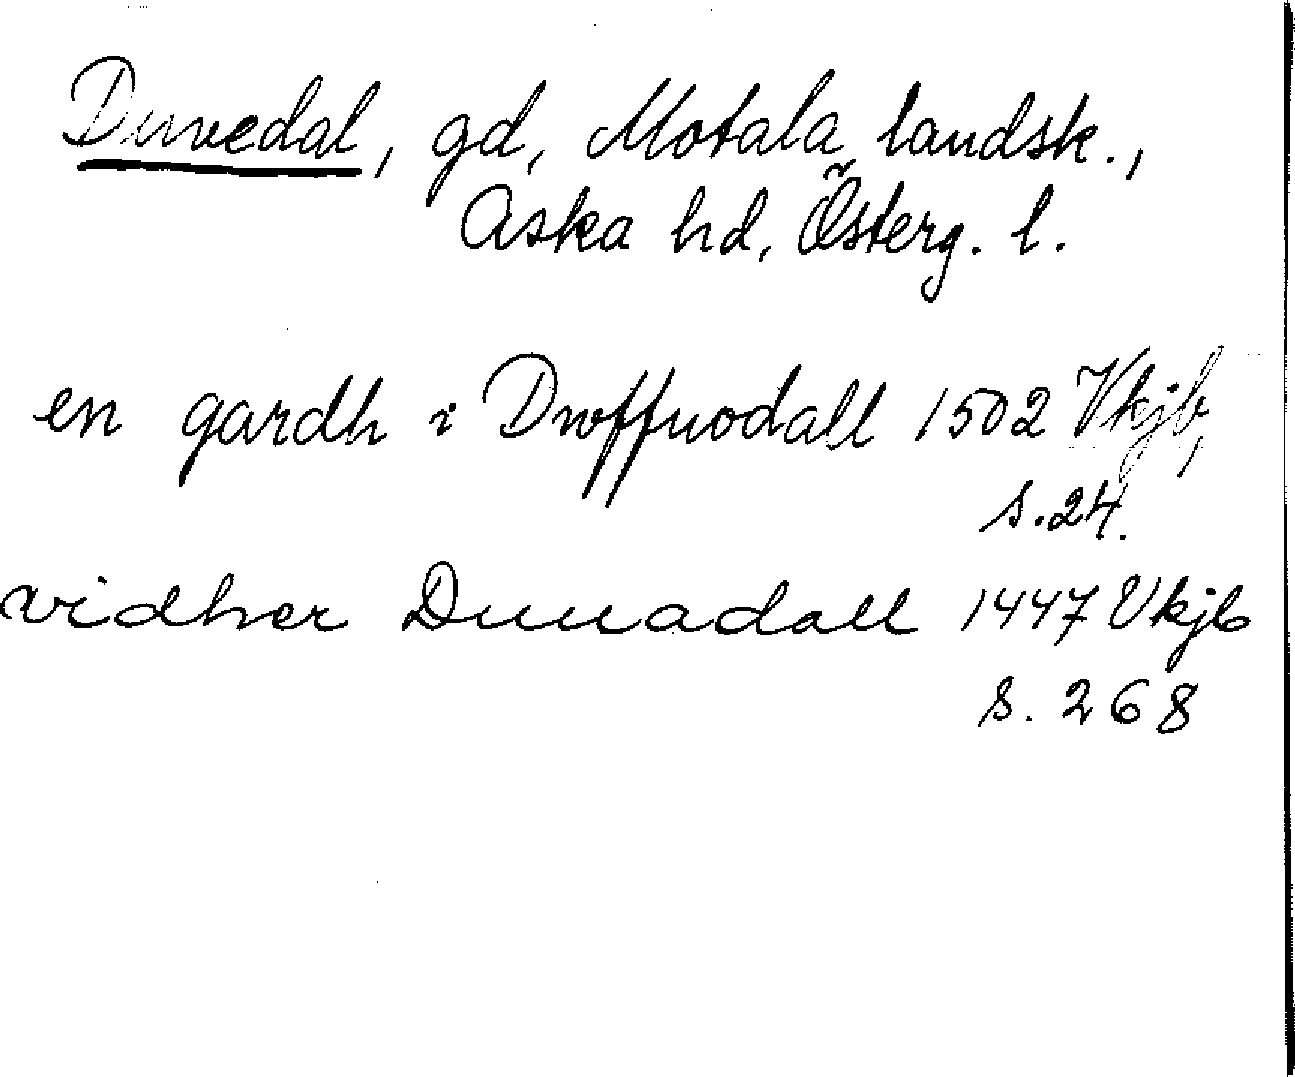 Duvedal, gd, Motala landsk.,
Aska hd, Österg. l.
en gardh i Dwffuodall 1502 Vkjb,
s. 24.
vidher Duuadall 1447 Vkjb
s. 268